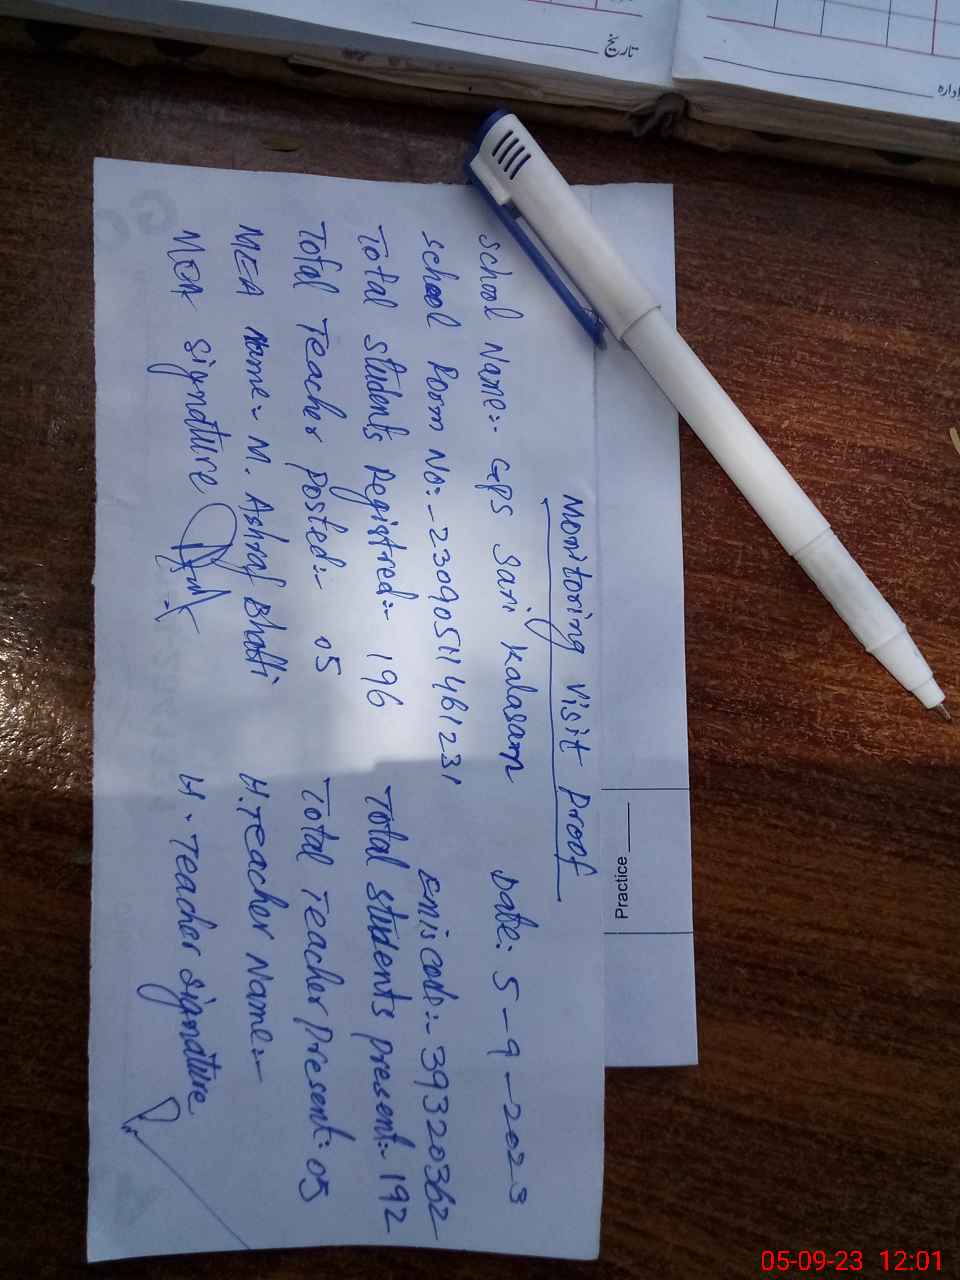 تاریخ
ادارہ
Monitoring Visit Proof
School Name:- GPS Sari Kalasam Date: 5-9-2023
School Room No:- 23090511461231 Emis code:- 39320362
Total Students Registred:- 196 Total Students Present:- 192
Total Teacher Posted:- 05 Total Teacher Present: 05
MEA Name:- M. Ashraf Bhatti H. Teacher Name:-
MEA Signature H. Teacher Signature
Practice
05-09-23 12:01